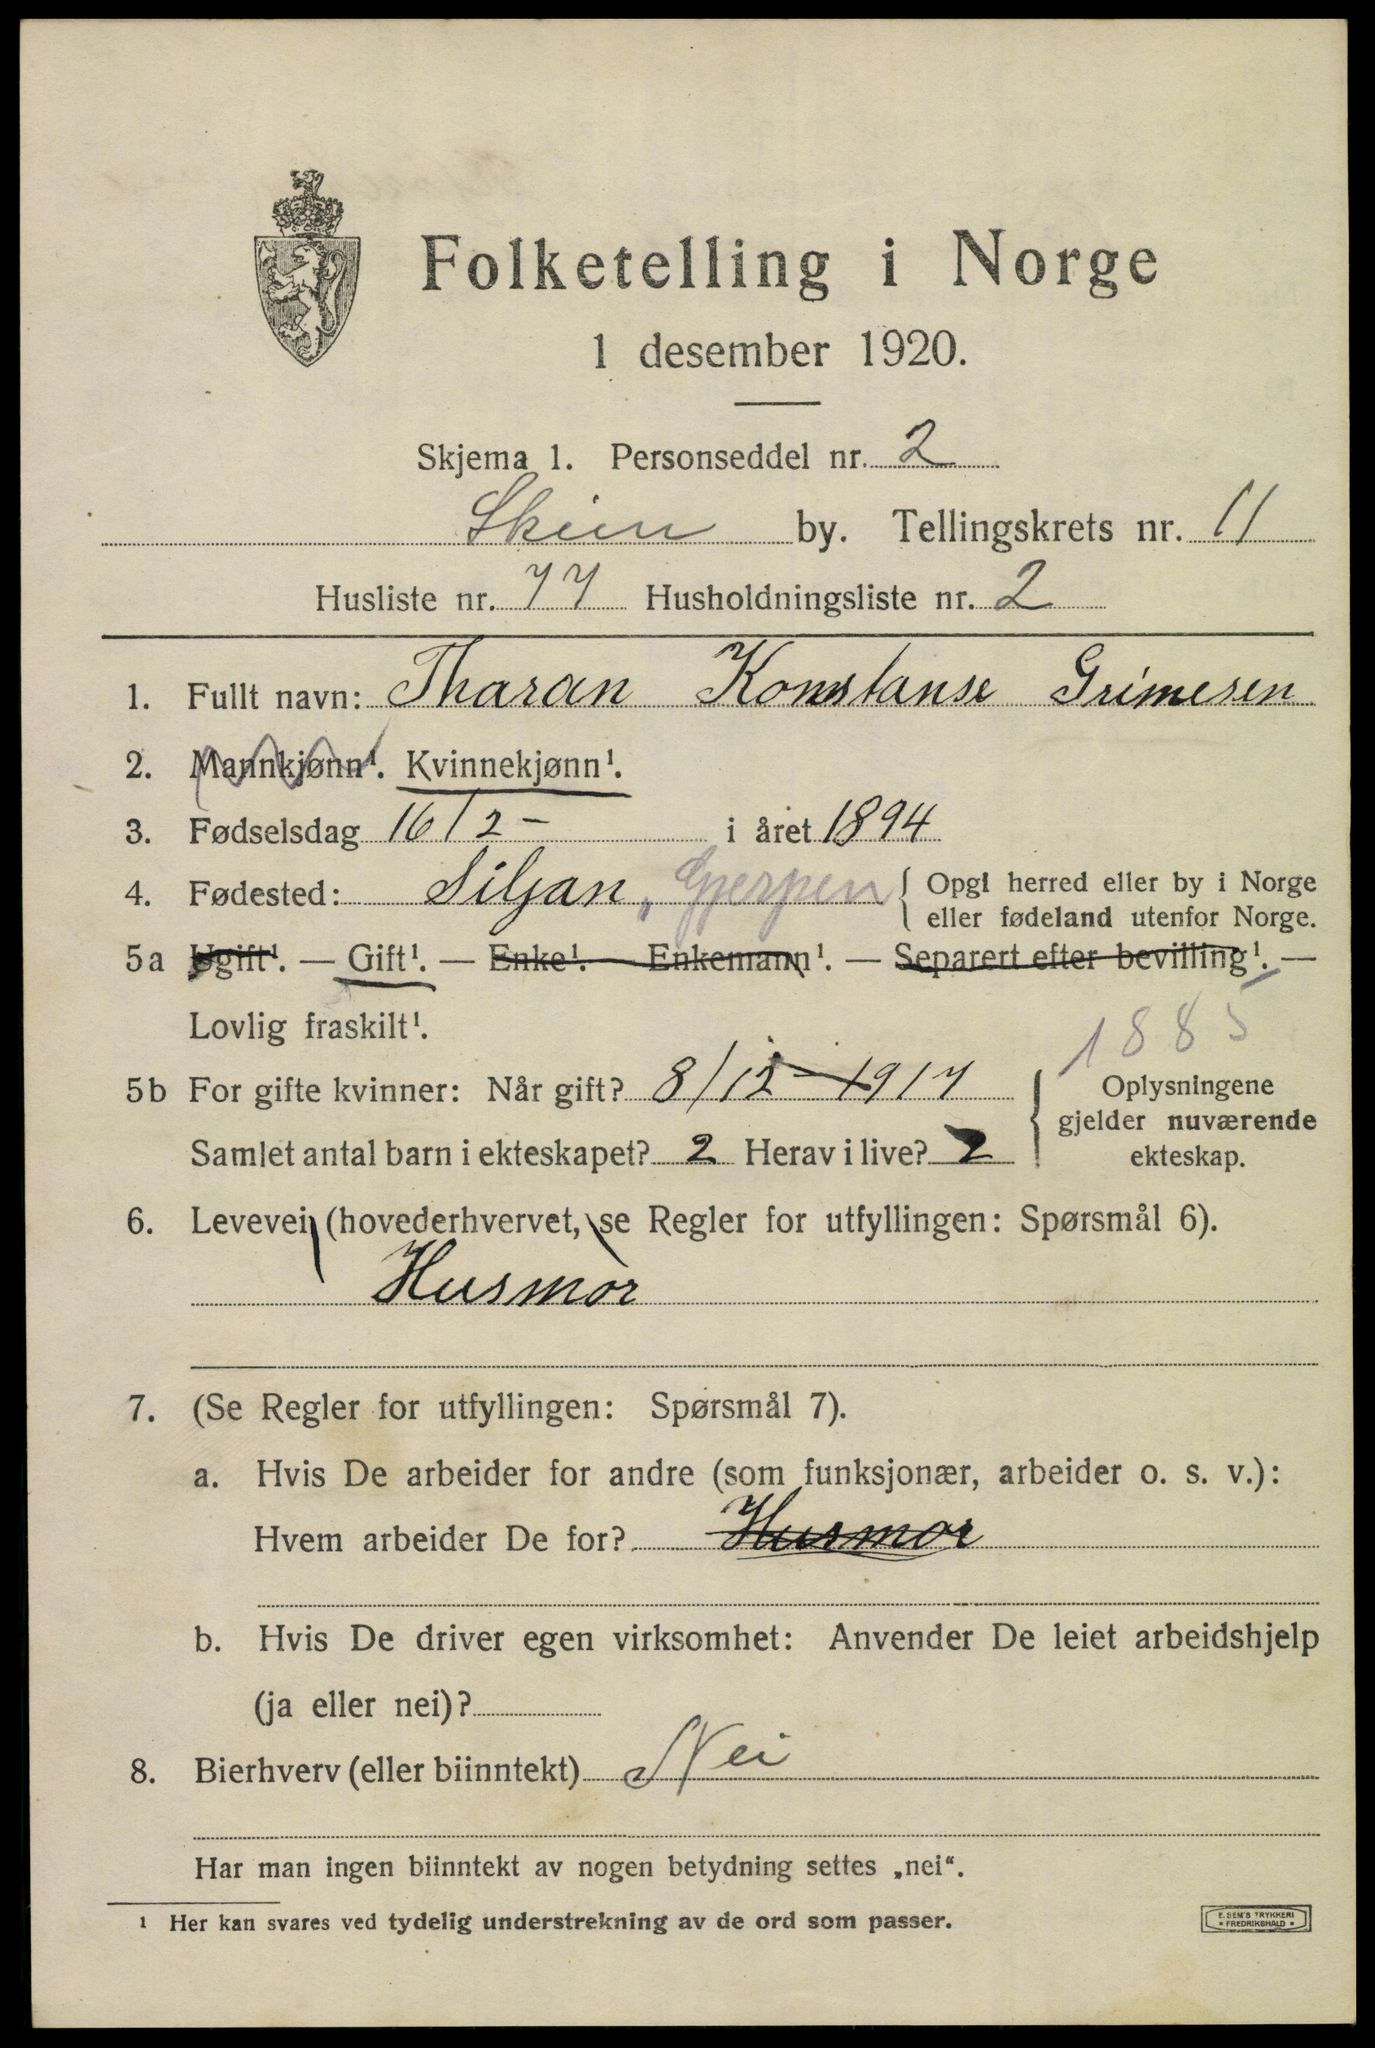 Folketelling i Norge
1 desember 1920.
Skjema 1. Personseddel nr. 2
Skien by. Tellingskrets nr. 11
Husliste nr. 77 Husholdningsliste nr. 2
1. Fullt navn: Tharan Konstanse Grimesen
2. Mannkjønn¹. Kvinnekjønn¹.
3. Fødselsdag 16/2- i året 1894
4. Fødested: Siljan, Gjerpen { Opgi herred eller by i Norge
eller fødeland utenfor Norge.
5a Ugift¹. — Gift¹. — Enke¹. — Enkemann¹. — Separert efter bevilling¹. —
Lovlig fraskilt¹.
1885
5b For gifte kvinner: Når gift? 8/12-1917 { Oplysningene
gjelder nuværende
Samlet antal barn i ekteskapet? 2 Herav i live? 2 ekteskap.
6. Levevei (hovederhvervet, se Regler for utfyllingen: Spørsmål 6).
Husmor
7. (Se Regler for utfyllingen: Spørsmål 7).
a. Hvis De arbeider for andre (som funksjonær, arbeider o. s. v.):
Hvem arbeider De for? Husmor
b. Hvis De driver egen virksomhet: Anvender De leiet arbeidshjelp
(ja eller nei)?
8. Bierhverv (eller biinntekt) Nei
Har man ingen biinntekt av nogen betydning settes „nei“.
¹ Her kan svares ved tydelig understrekning av de ord som passer.
E. SEM'S TRYKKERI
• FREDRIKSHALD •